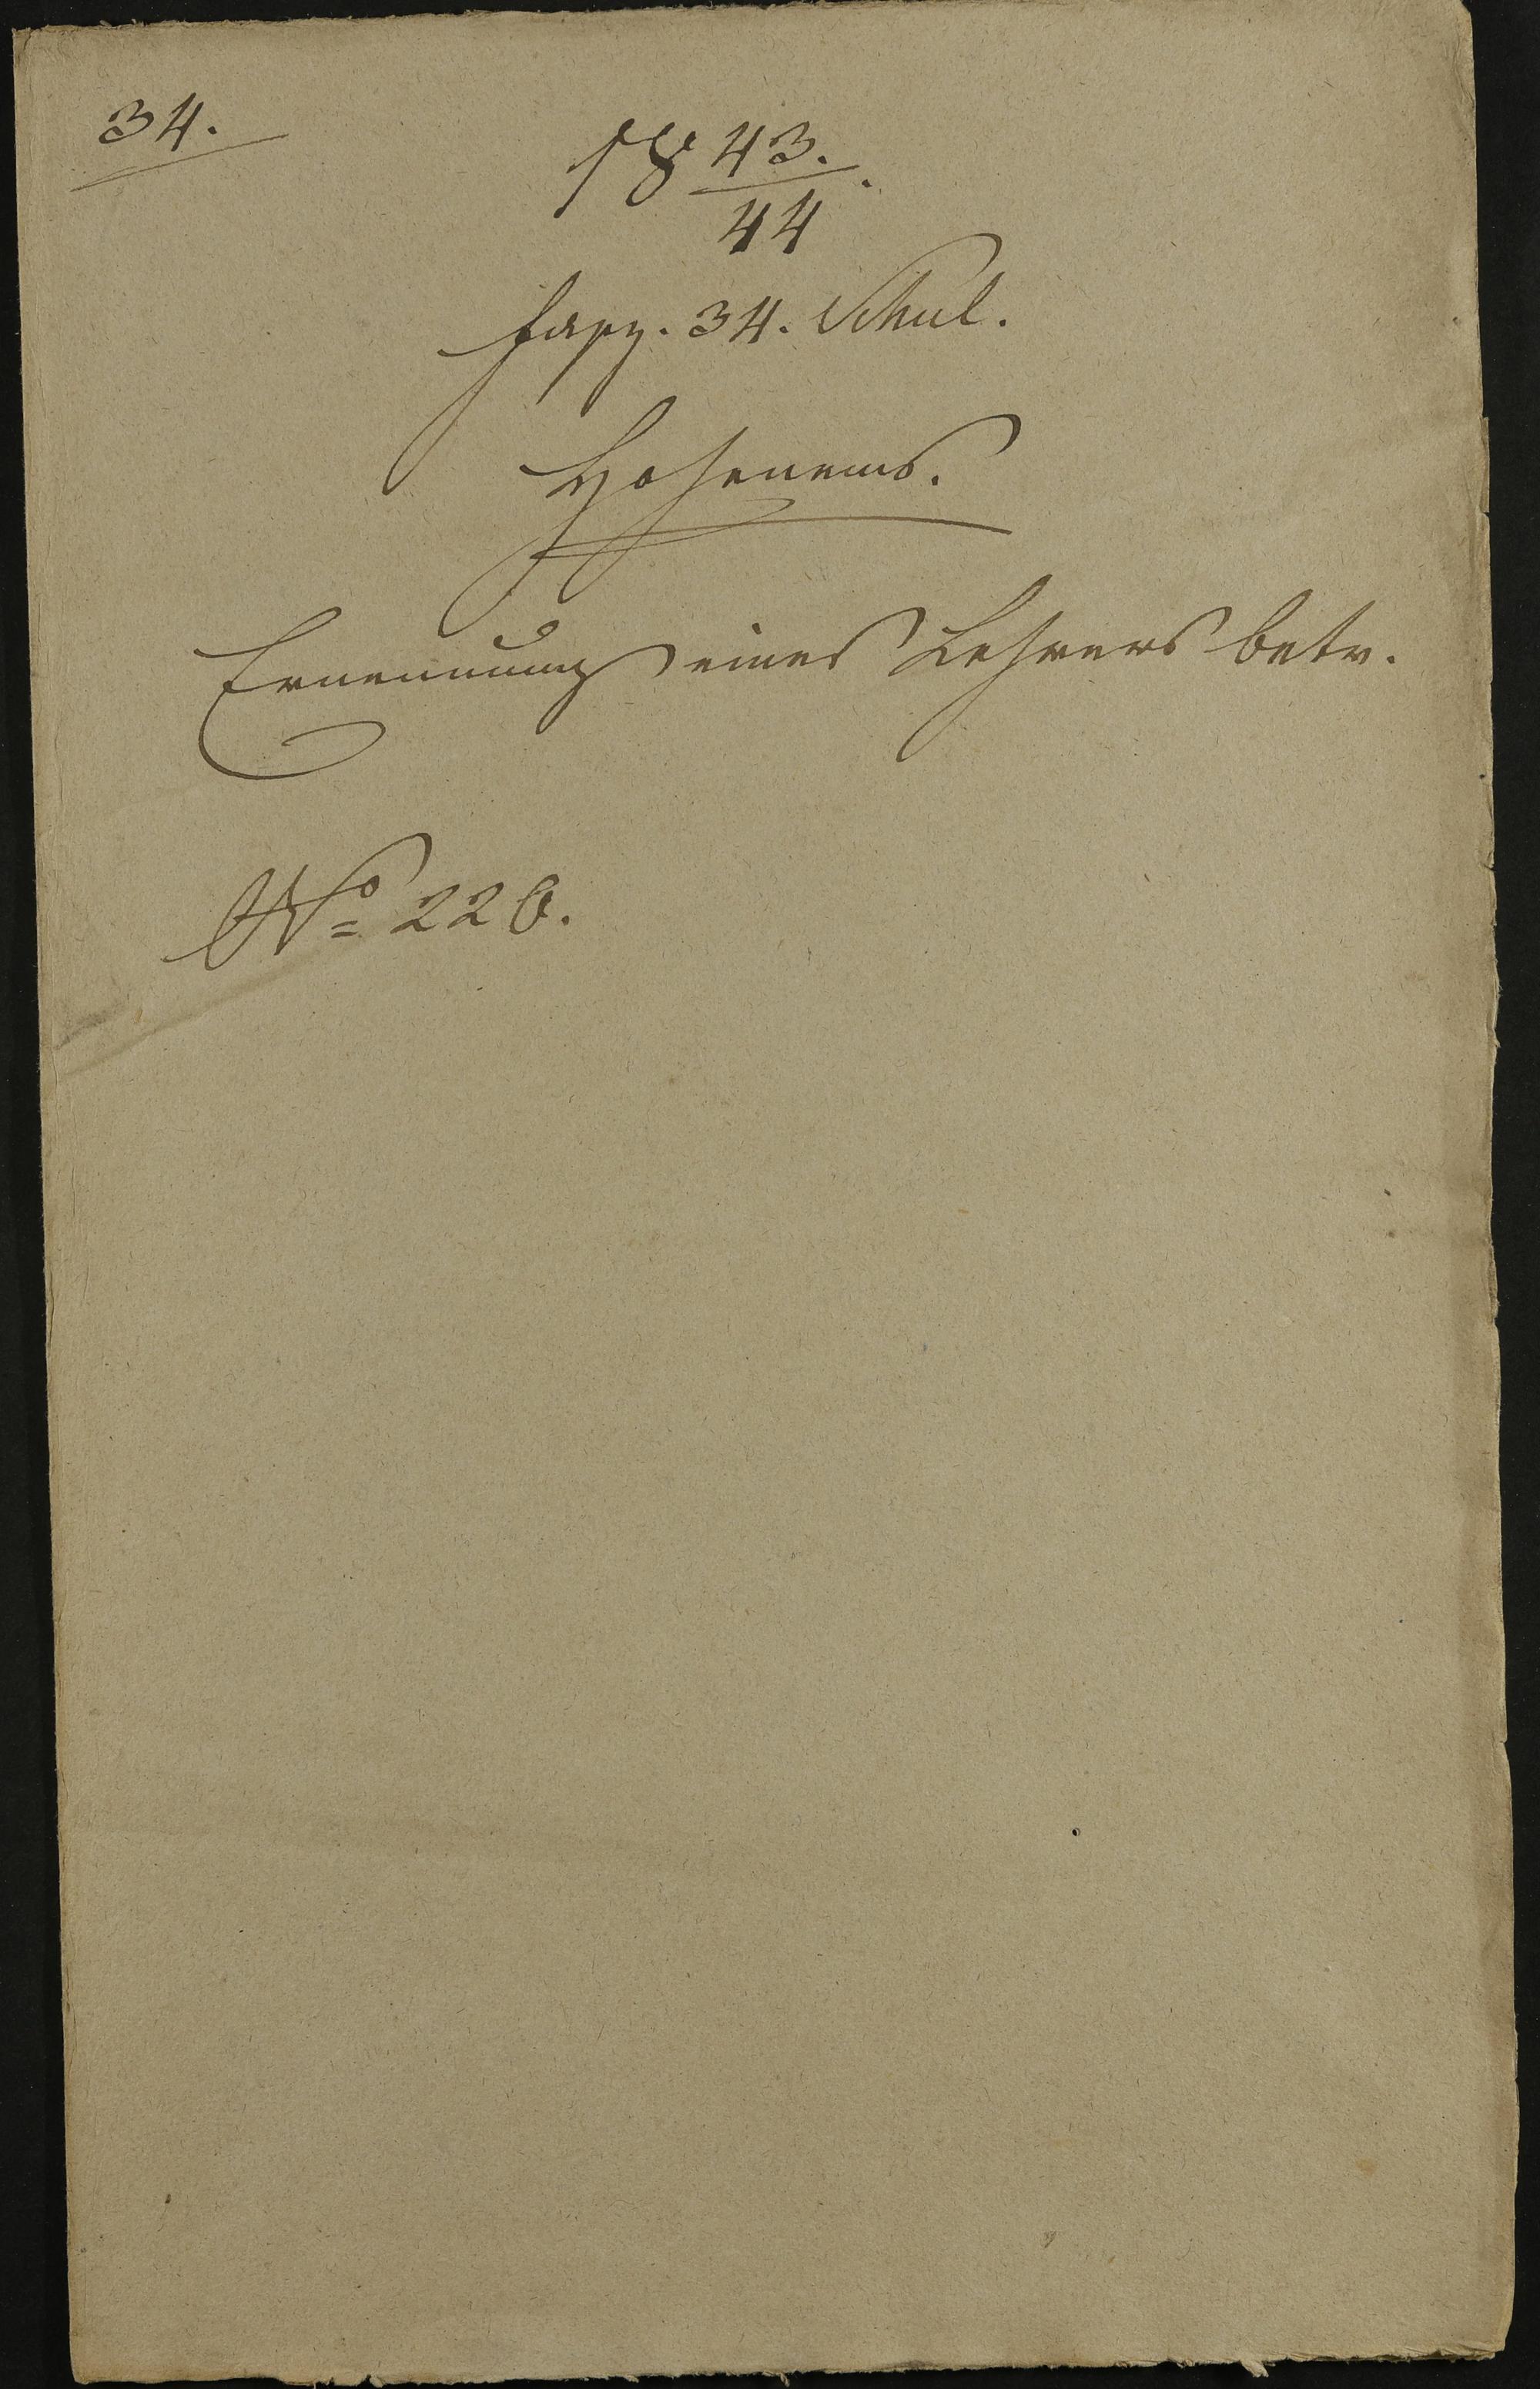 34.
18 43./44.
Fasz. 34. Schul.
Hohenems.
Ernennung eines Lehrers betr.
No 220.